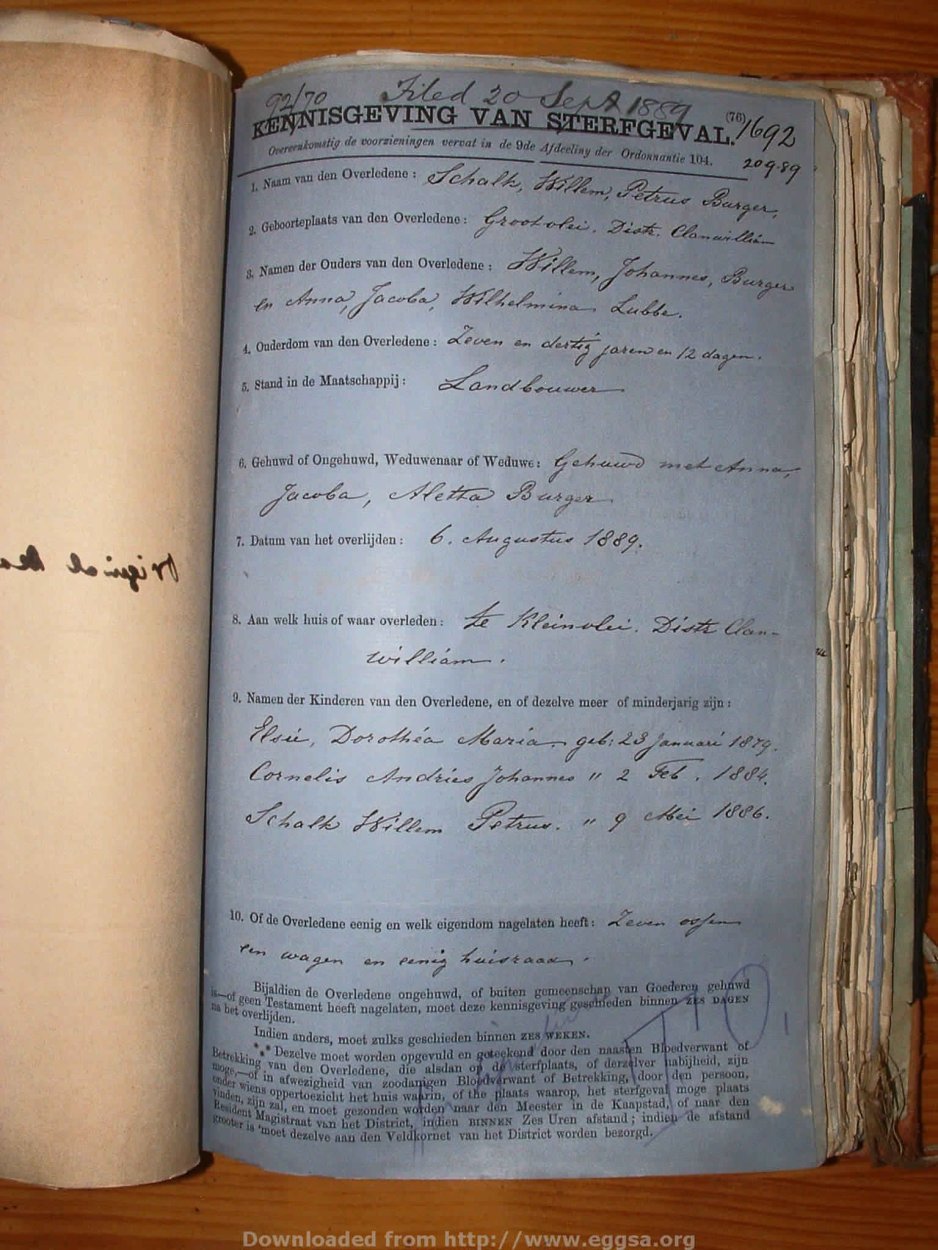 92/70 Filed 20 Sept 1889
KENNISGEVING VAN STERFGEVAL. (76) 1692
Overeenkomstig de voorzieningen vervat in de 9de Afdeeling der Ordonnantie 104. 20 9·89
1. Naam van den Overledene: Schalk, Willem, Petrus Burger,
2. Geboorteplaats van den Overledene: Grootvlei. Distr. Clanwilliam
3. Namen der Ouders van den Overledene: Willem, Johannes, Burger
en Anna, Jacoba, Wilhelmina Lubbe.
4. Ouderdom van den Overledene: Zeven en dertig jaren en 12 dagen.
5. Stand in de Maatschappij: Landbouwer
6. Gehuwd of Ongehuwd, Weduwenaar of Weduwe: Gehuwd met Anna,
Jacoba, Aletta Burger
7. Datum van het overlijden: 6. Augustus 1889.
8. Aan welk huis of waar overleden: te Kleinvlei. Distr Clan-
william.
9. Namen der Kinderen van den Overledene, en of dezelve meer of minderjarig zijn:
Elsie, Dorothéa Maria geb: 23 Januari 1879.
Cornelis Andries Johannes " 2 Feb. 1884.
Schalk Willem Petrus. " 9 Mei 1886.
10. Of de Overledene eenig en welk eigendom nagelaten heeft: Zeven ossen
een wagen en eenig huisraad.
Bijaldien de Overledene ongehuwd, of buiten gemeenschap van Goederen gehuwd
is—of geen Testament heeft nagelaten, moet deze kennisgeving geschieden binnen ZES DAGEN
na het overlijden.
Indien anders, moet zulks geschieden binnen ZES WEKEN.
*** Dezelve moet worden opgevuld en geteekend door den naasten Bloedverwant of
Betrekking van den Overledene, die alsdan op de sterfplaats, of derzelver nabijheid, zijn
moge,—of in afwezigheid van zoodanigen Bloedverwant of Betrekking, door den persoon,
onder wiens oppertoezicht het huis waarin, of the plaats waarop, het sterfgeval moge plaats
vinden, zijn zal, en moet gezonden worden naar den Meester in de Kaapstad, of naar den
Resident Magistraat van het District, indien BINNEN Zes Uren afstand; indien de afstand
grooter is 'moet dezelve aan den Veldkornet van het District worden bezorgd.
Downloaded from http://www.eggsa.org